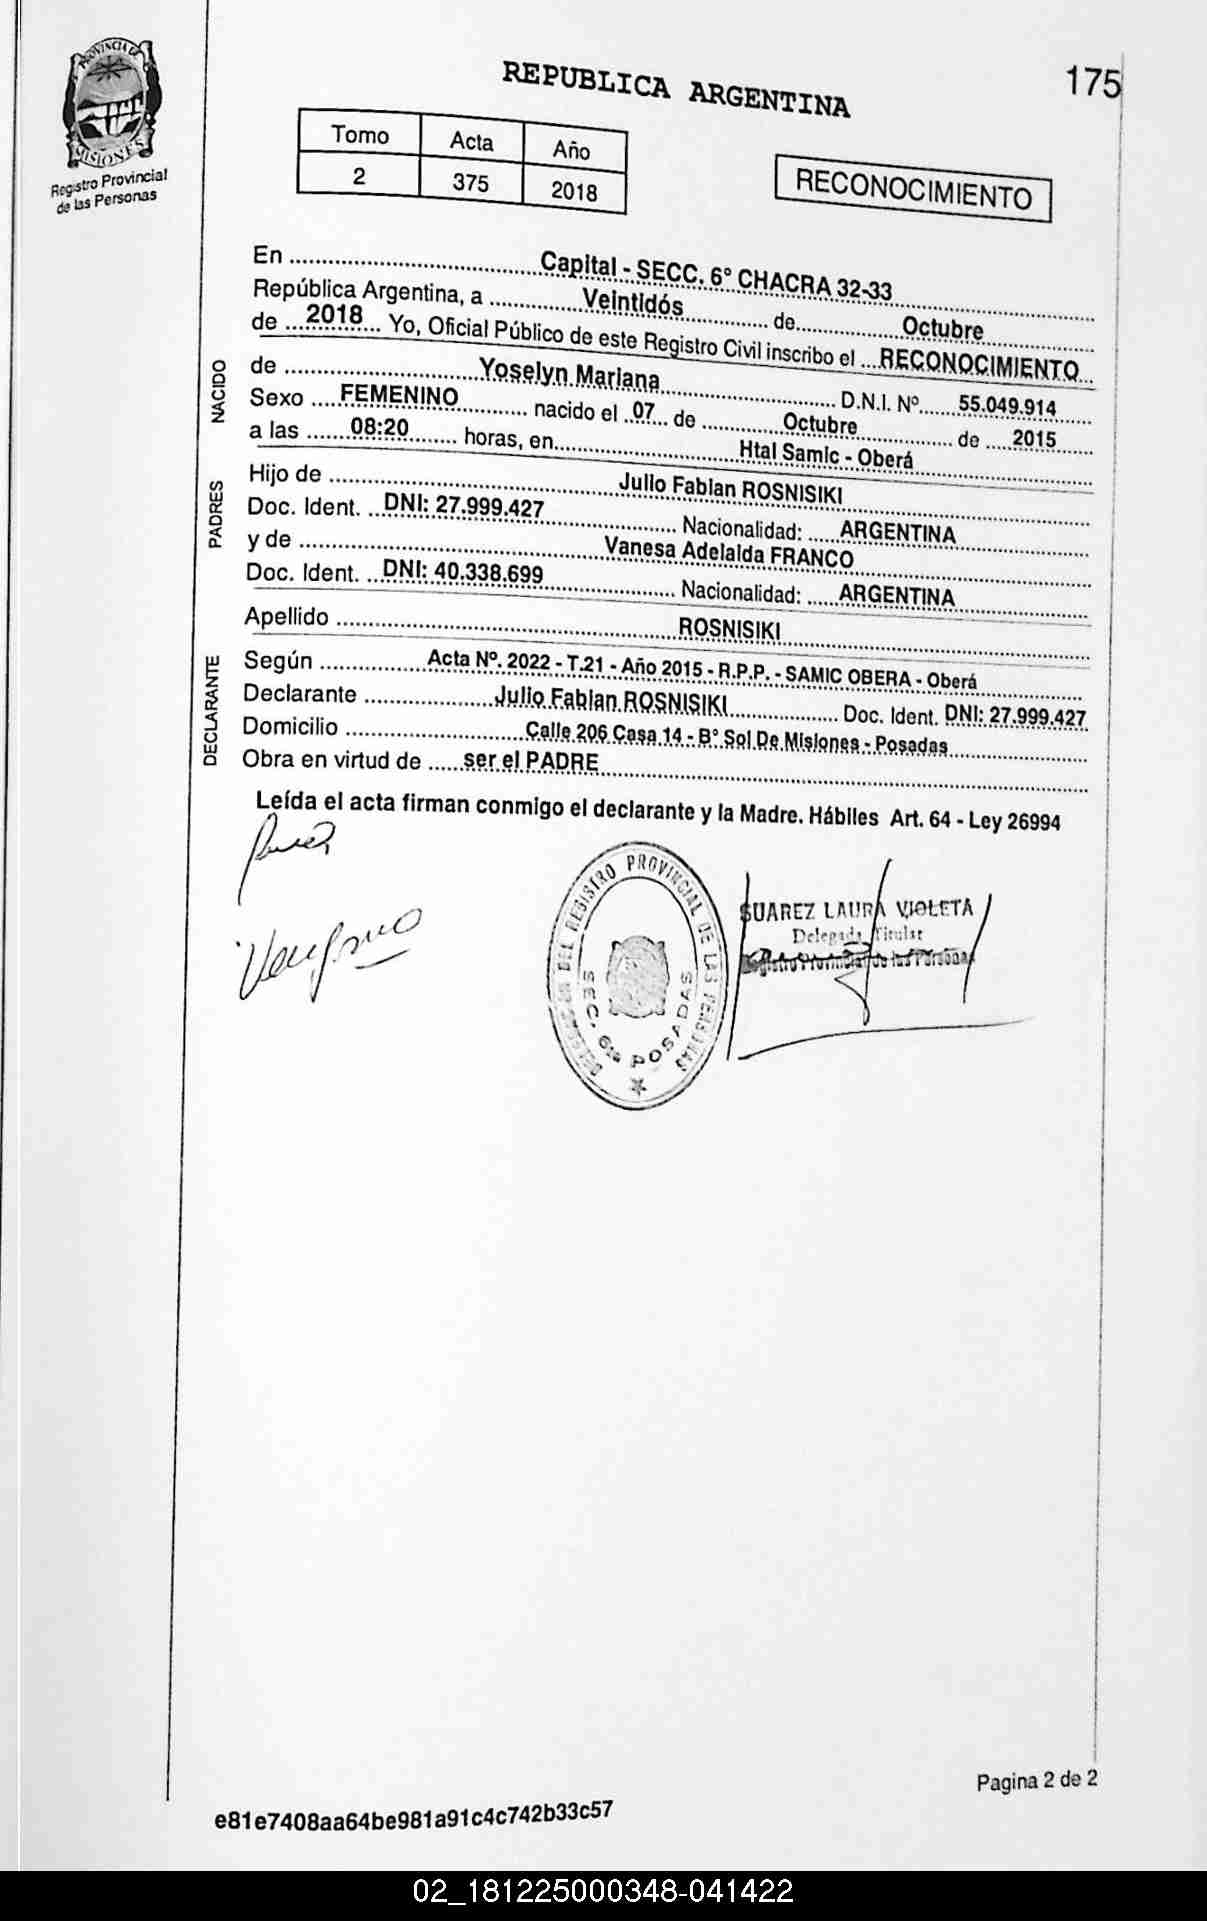 PROVINCIA DE
MISIONES
Registro Provincial
de las Personas
REPUBLICA ARGENTINA
175
Tomo Acta Año
2 375 2018
RECONOCIMIENTO
En ........ Capital - SECC. 6° CHACRA 32-33 ........
República Argentina, a ........ Veintidós ........ de ........ Octubre ........
de ... 2018 ... Yo, Oficial Público de este Registro Civil inscribo el ... RECONOCIMIENTO ...
NACIDO
de ........ Yoselyn Mariana ........ D.N.I. Nº ...... 55.049.914 ......
Sexo .... FEMENINO ........ nacido el .. 07 ... de ........ Octubre ........ de .... 2015 ......
a las ...... 08:20 ....... horas, en ........ Htal Samic - Oberá ........
PADRES
Hijo de ........ Julio Fabian ROSNISIKI ........
Doc. Ident. ... DNI: 27.999.427 ........ Nacionalidad: ..... ARGENTINA ........
y de ........ Vanesa Adelaida FRANCO ........
Doc. Ident. ... DNI: 40.338.699 ........ Nacionalidad: ..... ARGENTINA ........
Apellido ........ ROSNISIKI ........
DECLARANTE
Según ........ Acta Nº. 2022 - T.21 - Año 2015 - R.P.P. - SAMIC OBERA - Oberá ........
Declarante ........ Julio Fabian ROSNISIKI ........ Doc. Ident. DNI: 27.999.427
Domicilio ........ Calle 206 Casa 14 - B° Sol De Misiones - Posadas ........
Obra en virtud de ..... ser el PADRE ........
Leída el acta firman conmigo el declarante y la Madre. Hábiles Art. 64 - Ley 26994
DELEGACION DEL REGISTRO PROVINCIAL DE LAS PERSONAS
SEC. 6ta POSADAS
SUAREZ LAURA VIOLETA
Delegada Titular
Registro Provincial de las Personas
Pagina 2 de 2
e81e7408aa64be981a91c4c742b33c57
02_181225000348-041422